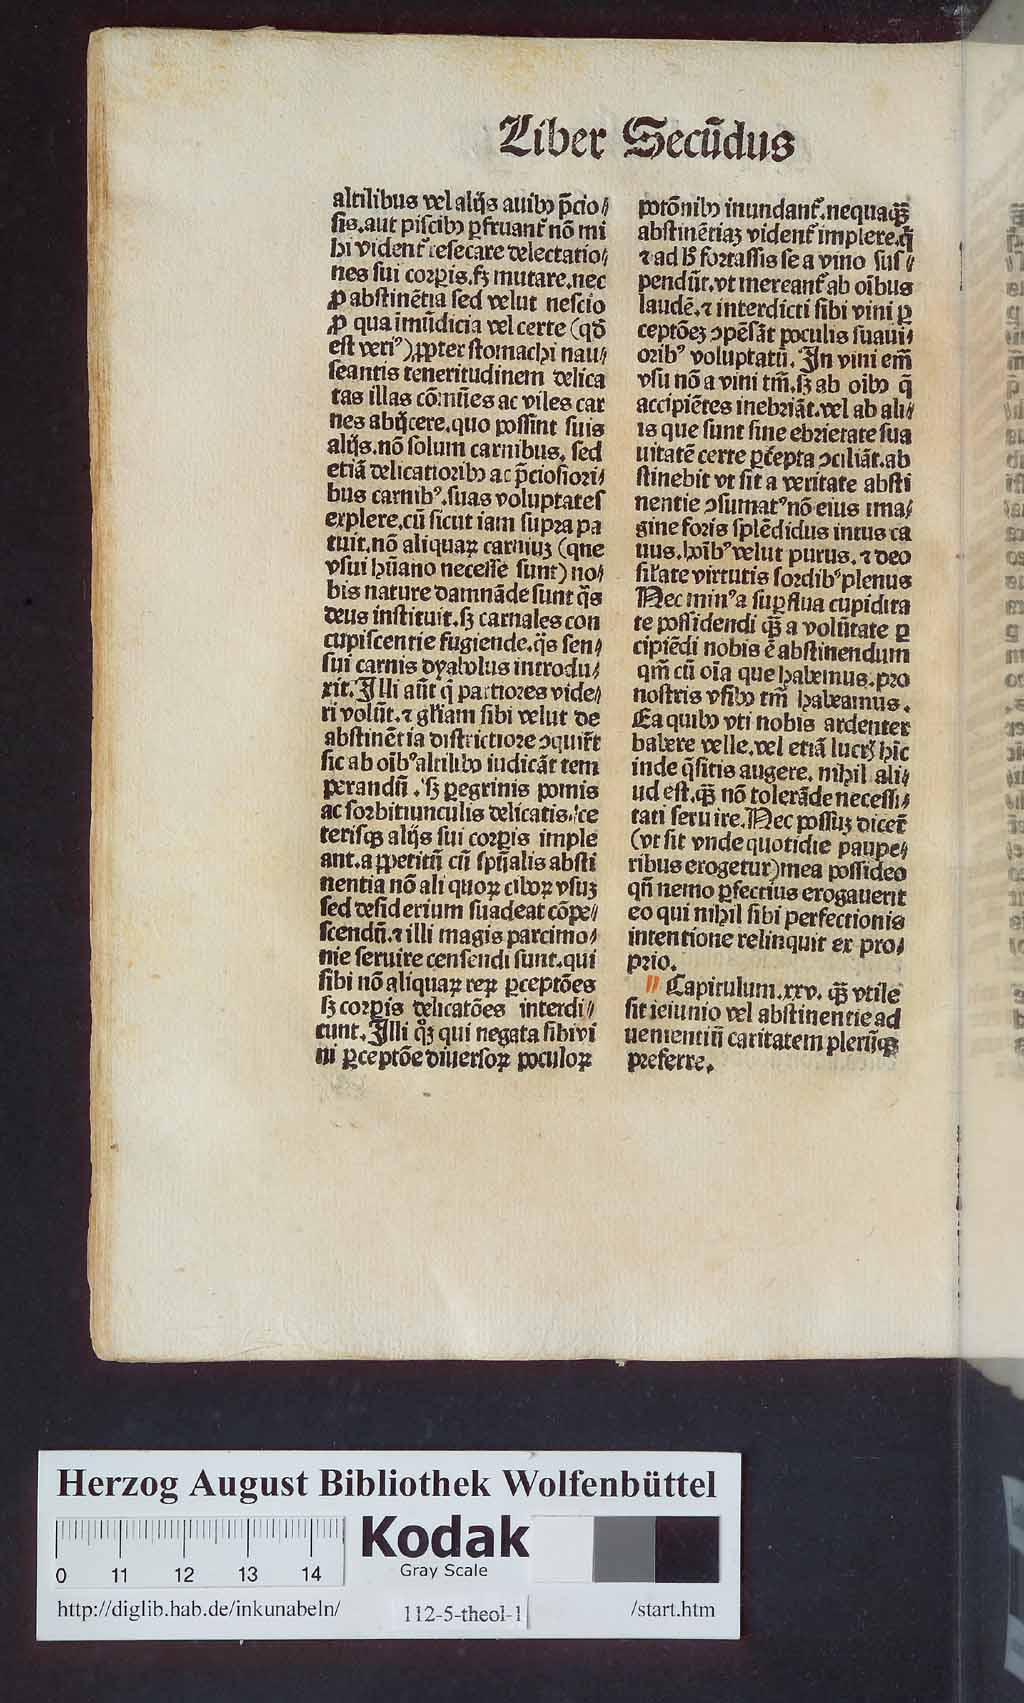 Liber Secūdus
altilibus vel alijs auibꝰ p̄cio⸗
sis. aut piscibꝰ ꝑfruant᷑ nō mi
hi vident᷑ resecare delectatio⸗
nes sui corꝑis. sꝫ mutare. nec
ꝓ abstinētia sed velut nescio
ꝓ qua īmūdicia vel certe (qď
est veriꝰ) ꝓpter stomachi nau⸗
seantis teneritudinem delica
tas illas cōmūes ac viles car
nes abijcere. quo possint suis
alijs. nō solum carnibus. sed
etiā delicatioribꝰ ac p̄ciosiori⸗
bus carnibꝰ. suas voluptates
explere. cū sicut iam supra pa
tuit. nō aliquaꝝ carniuꝫ (que
vsui hūano necesse sunt) no⸗
bis nature damnāde sunt q̄s
deus instituit. sꝫ carnales con
cupiscentie fugiende. q̄s sen⸗
sui carnis dyabolus introdu⸗
xit. Illi aūt q̄ partiores vide⸗
ri volūt. ⁊ gľiam sibi velut de
abstinētia districtiore ꝯquir̄t
sic ab oībꝰ altilibꝰ iudicāt tem
perandū. sꝫ ꝑegrinis pomis
ac sorbitiunculis delicatis. ce
terisqꝫ alijs sui corꝑis imple
ant. aꝓpetitū cū spūalis absti
nentia nō ali quoꝝ ciboꝝ vsuꝫ
sed desid erium suadeat cōpe⸗
scendū. ⁊ illi magis parcimo⸗
nie seruire censendi sunt. qui
sibi nō aliquaꝝ reꝝ ꝑceptōes
sꝫ corꝑis delicatōes interdi⸗
cunt. Illi qͦꝫ qui negata sibi vi
ni ꝑceptōe diuersoꝝ poculoꝝ
potōnibꝰ inundant᷑. nequaqꝫ̄
abstinētiaꝫ vident᷑ implere. q̄
⁊ ad hͦ fortassis se a vino sus⸗
pendūt. vt mereant᷑ ab oībus
laudē. ⁊ interdicti sibi vini ꝑ
ceptōeꝫ ꝯpēsāt poculis suaui⸗
oribꝰ voluptatū. In vini em̄
vsu nō a vini tm̄. sꝫ ab oibꝰ q̄
accipiētes inebriāt. vel ab ali⸗
is que sunt sine ebrietate sua
uitatē certe ꝑcepta ꝯciliāt. ab
stinebit vt sit a veritate absti
nentie ꝯsumatꝰ nō eius ima⸗
gine foris splēdidus intus ca
uus. hoībꝰ velut purus. ⁊ deo
siľate virtutis sordibꝰ plenus
Nec minꝰ a suꝑflua cupidita
te possidendi qꝫ̄ a volūtate ꝑ
cipiēdi nobis ē abstinendum
qm̄ cū oīa que habemus. pro
nostris vsibꝰ tm̄ habeamus.
Ea quibꝰ vti nobis ardenter
habere velle. vel etiā lucrꝭ hīc
inde q̄sitis augere. nihil ali⸗
ud est. qꝫ̄ nō tolerāde necessi⸗
tati seruire. Nec possuꝫ dicer̄
(vt sit vnde quotidie paupe⸗
ribus erogetur) mea possideo
qn̄ nemo ꝑfectius erogauerit
eo qui nihil sibi perfectionis
intentione relinquit ex pro⸗
prio.
Capitulum. xxv. qꝫ̄ vtile
sit ieiunio vel abstinentie ad
uenientiū caritatem plerūqꝫ
preferre.
Herzog August Bibliothek Wolfenbüttel
0 11 12 13 14
Kodak
Gray Scale
http://diglib.hab.de/inkunabeln/ 112-5-theol-1 /start.htm